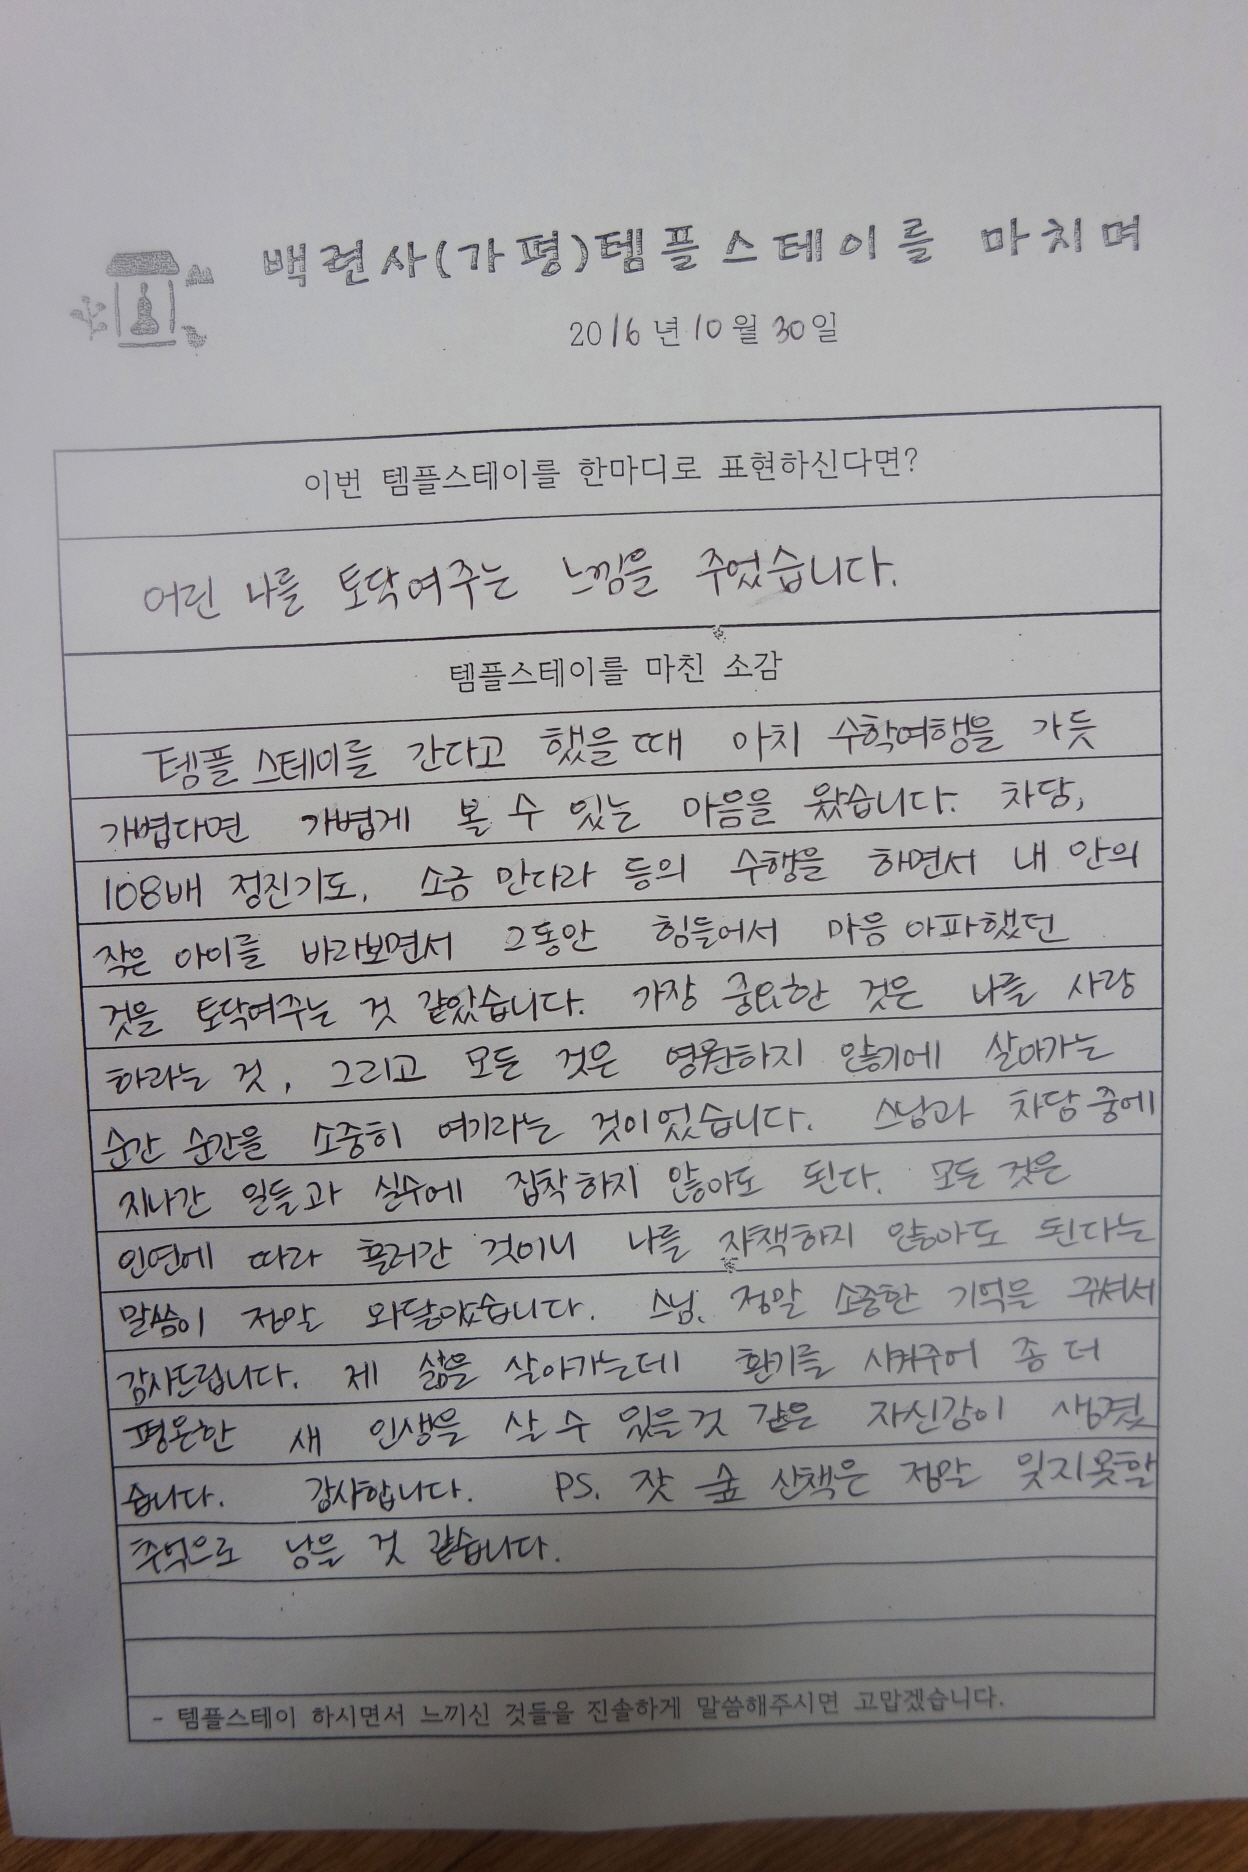 백련사(가평)템플스테이를 마치며
2016년 10월 30일
이번 템플스테이를 한마디로 표현하신다면?
어린 나를 토닥여주는 느낌을 주었습니다.
템플스테이를 마친 소감
템플스테이를 간다고 했을때 마치 수학여행을 가듯
가볍다면 가볍게 볼 수 있는 마음을 왔습니다. 차담,
108배 정진기도, 소금 만다라 등의 수행을 하면서 내 안의
작은 아이를 바라보면서 그동안 힘들어서 마음 아파했던
것을 토닥여주는 것 같았습니다. 가장 중요한 것은 나를 사랑
하라는 것, 그리고 모든 것은 영원하지 않기에 살아가는
순간 순간을 소중히 여기라는 것이었습니다. 스님과 차담 중에
지나간 일들과 실수에 집착하지 않아도 된다. 모든 것은
인연에 따라 흘러간 것이니 나를 자책하지 않아도 된다는
말씀이 정말 와닿았습니다. 스님, 정말 소중한 기억을 주셔서
감사드립니다. 제 삶을 살아가는데 환기를 시켜주어 좀 더
평온한 새 인생을 살 수 있을것 같은 자신감이 생겼
습니다. 감사합니다. PS. 잣 숲 산책은 정말 잊지못할
추억으로 남을 것 같습니다.
- 템플스테이 하시면서 느끼신 것들을 진솔하게 말씀해주시면 고맙겠습니다.